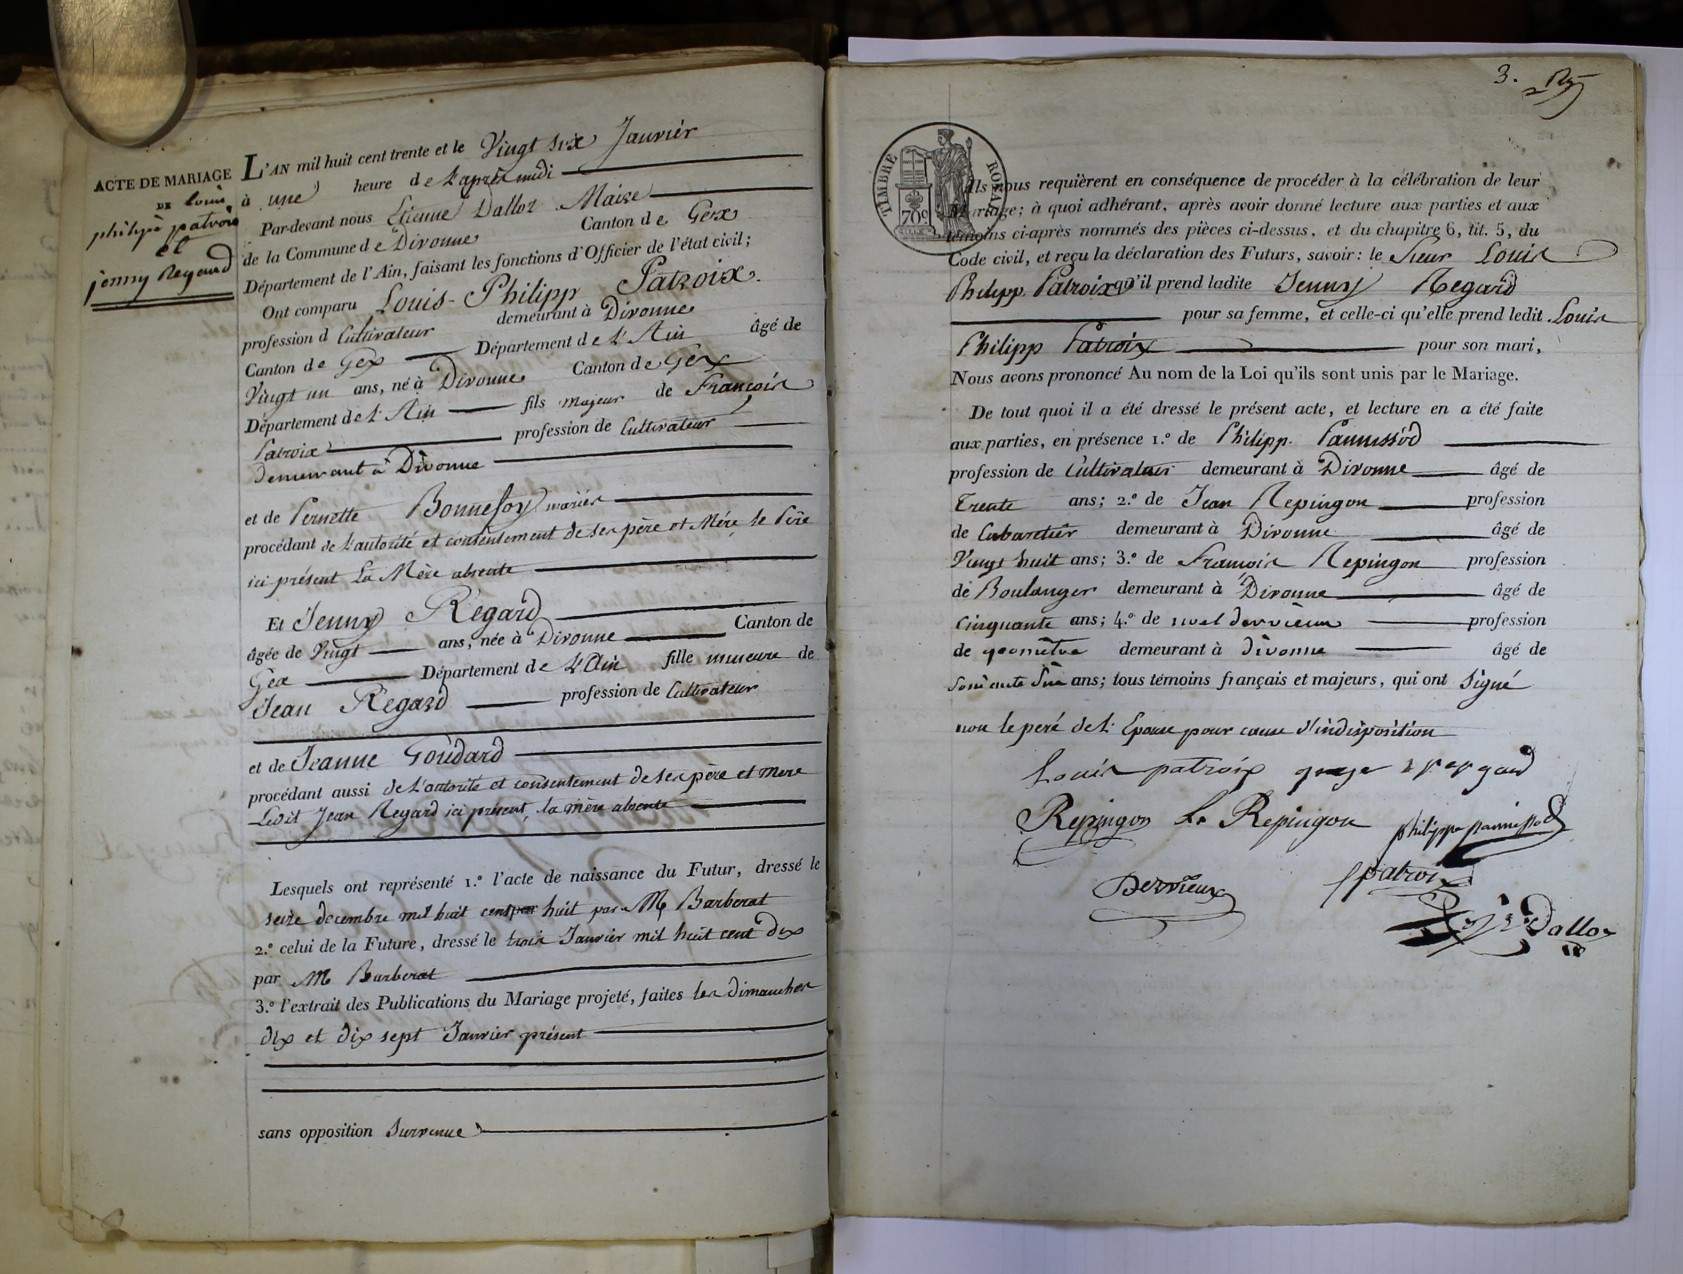 ACTE DE MARIAGE
DE Louis
philipe patroix
et
jenny Regard
L'AN mil huit cent trente et le Vingt six Janvier
à une heure de L'après midi
Par-devant nous Etienne Dalloz Maire
de la Commune de Divonne Canton de Gex
Département de l'Ain, faisant les fonctions d'Officier de l'état civil;
Ont comparu Louis-Philipp Patroix.
profession d Cultivateur demeurant à Divonne
Canton de Gex Département de L'Ain âgé de
Vingt un ans, né à Divonne Canton de Gex
Département de L'Ain fils majeur de François
Patroix profession de Cultivateur
demeurant à Divonne
et de Pernette Bonnefoy mariés
procédant de L'autorité et consentement de ses père et Mère, le Père
ici présent La Mère absente
Et Jenny Regard
âgée de Vingt ans, née à Divonne Canton de
Gex Département de L'Ain fille mineure de
Jean Regard profession de Cultivateur
et de Jeanne Goudard
procédant aussi de L'autorité et consentement de ses père et mere
Ledit Jean Regard ici présent, la mère absente
Lesquels ont représenté 1.º l'acte de naissance du Futur, dressé le
seize decembre mil huit cent huit par M Barberat
2.º celui de la Future, dressé le trois Janvier mil huit cent dix
par M Barberat
3.º l'extrait des Publications du Mariage projeté, faites les dimanches
dix et dix sept Janvier présent
sans opposition Survenue
3.
TIMBRE ROYAL
70c
Ils nous requièrent en conséquence de procéder à la célébration de leur
Mariage; à quoi adhérant, après avoir donné lecture aux parties et aux
témoins ci-après nommés des pièces ci-dessus, et du chapitre 6, tit. 5, du
Code civil, et reçu la déclaration des Futurs, savoir: le Sieur Louis
Philipp Patroix qu'il prend ladite Jenny Regard
pour sa femme, et celle-ci qu'elle prend ledit Louis
Philipp Patroix pour son mari,
Nous avons prononcé Au nom de la Loi qu'ils sont unis par le Mariage.
De tout quoi il a été dressé le présent acte, et lecture en a été faite
aux parties, en présence 1.º de Philipp Pannissod
profession de Cultivateur demeurant à Divonne âgé de
Trente ans; 2.º de Jean Repingon profession
de Cabaretier demeurant à Divonne âgé de
Vingt huit ans; 3.º de François Repingon profession
de Boulanger demeurant à Divonne âgé de
Cinquante ans; 4.º de noel dervieux profession
de géomêtre demeurant à divonne âgé de
ans; tous témoins français et majeurs, qui ont signé
non le peré de L'Epouse pour cause d'indisposition
Louis patroix
Repingon Repingon philippe pannissod
Dervieux patroix
Dalloz